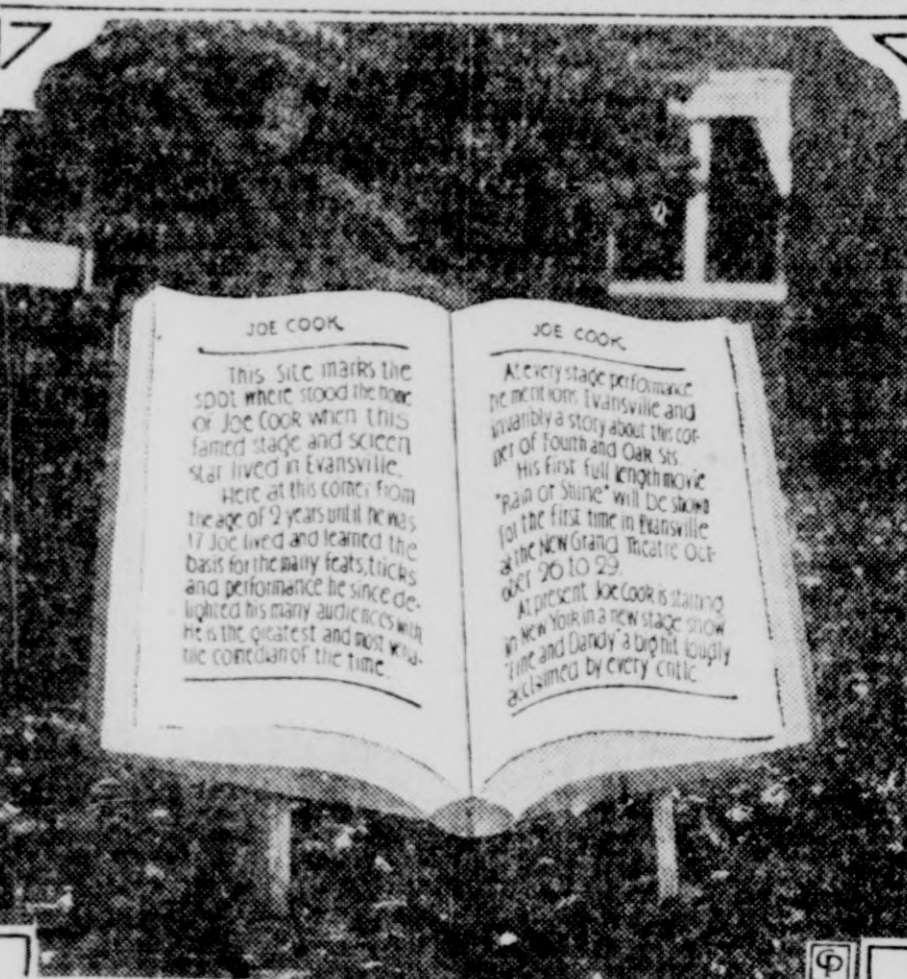 JOE COOK
This site marks the
spot where stood the home
of Joe Cook when this
famed stage and screen
star lived in Evansville.
Here at this corner from
the age of 2 years until he was
17 Joe lived and learned the
basis for the many feats, tricks
and performance he since de-
lighted his many audiences with
He is the greatest and most versa-
tile comedian of the time.
JOE COOK
At every stage performance
he mentions Evansville and
invaribly a story about this cor-
ner of Fourth and Oak Sts.
His first full length movie
"Rain or Shine" will be shown
for the first time in Evansville
at the New Grand Theatre Oct-
ober 26 to 29.
At present Joe Cook is starring
in New York in a new stage show
"Fine and Dandy" a big hit loudly
acclaimed by every critic
CP